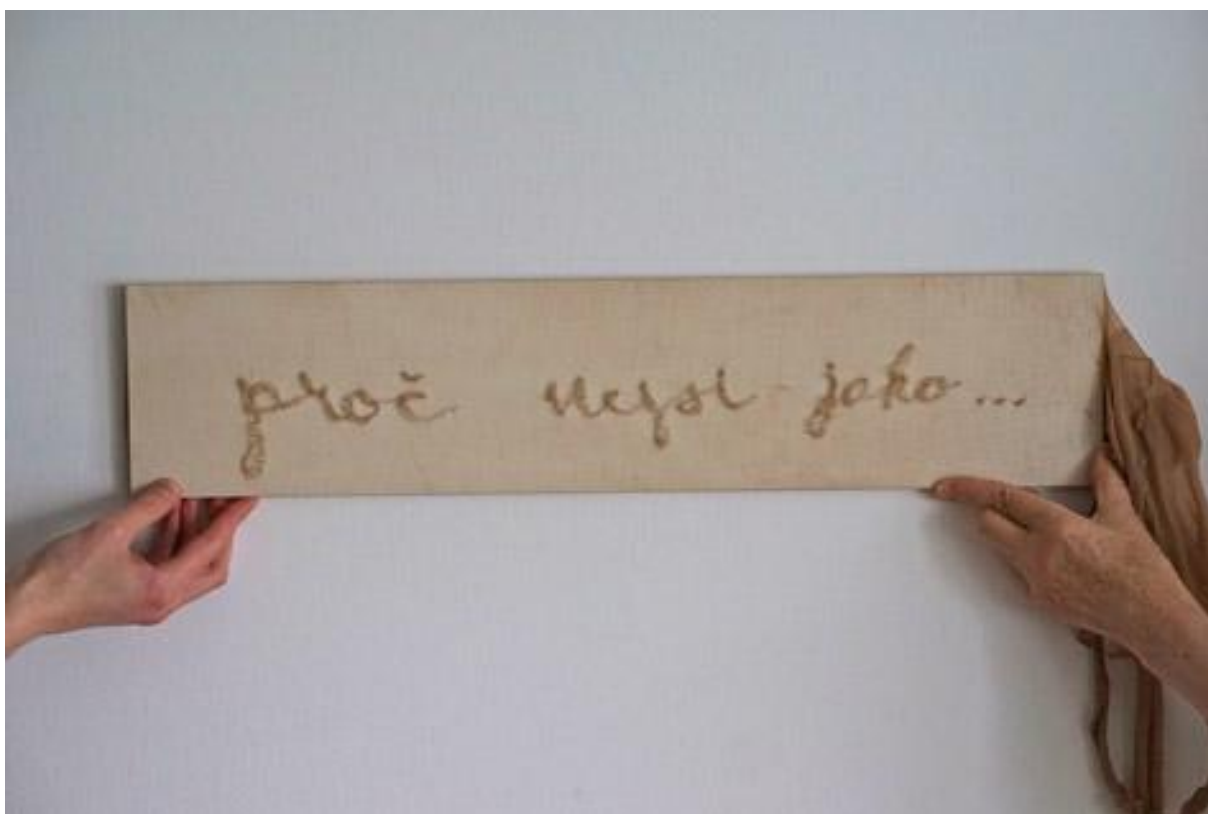 proč nejsi jako...